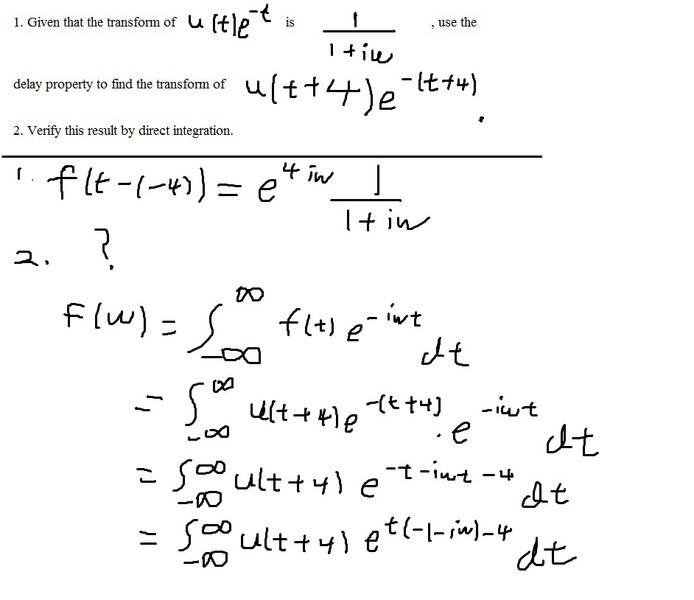 1. Given that the transform of u(t)e^-t is 1/(1+iw) , use the
delay property to find the transform of u(t+4)e^-(t+4).
2. Verify this result by direct integration.
1. f(t-(-4)) = e^4iw 1/(1+iw)
2. ?
F(w) = ∫_-∞^∞ f(t) e^-iwt dt
= ∫_-∞^∞ u(t+4)e^-(t+4) · e^-iwt dt
= ∫_-∞^∞ u(t+4) e^-t-iwt-4 dt
= ∫_-∞^∞ u(t+4) e^t(-1-iw)-4 dt